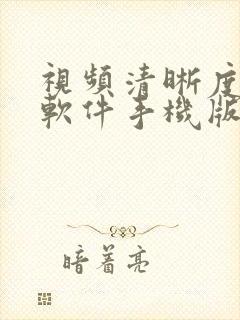 視頻清晰度
軟件手機版
暗着亮